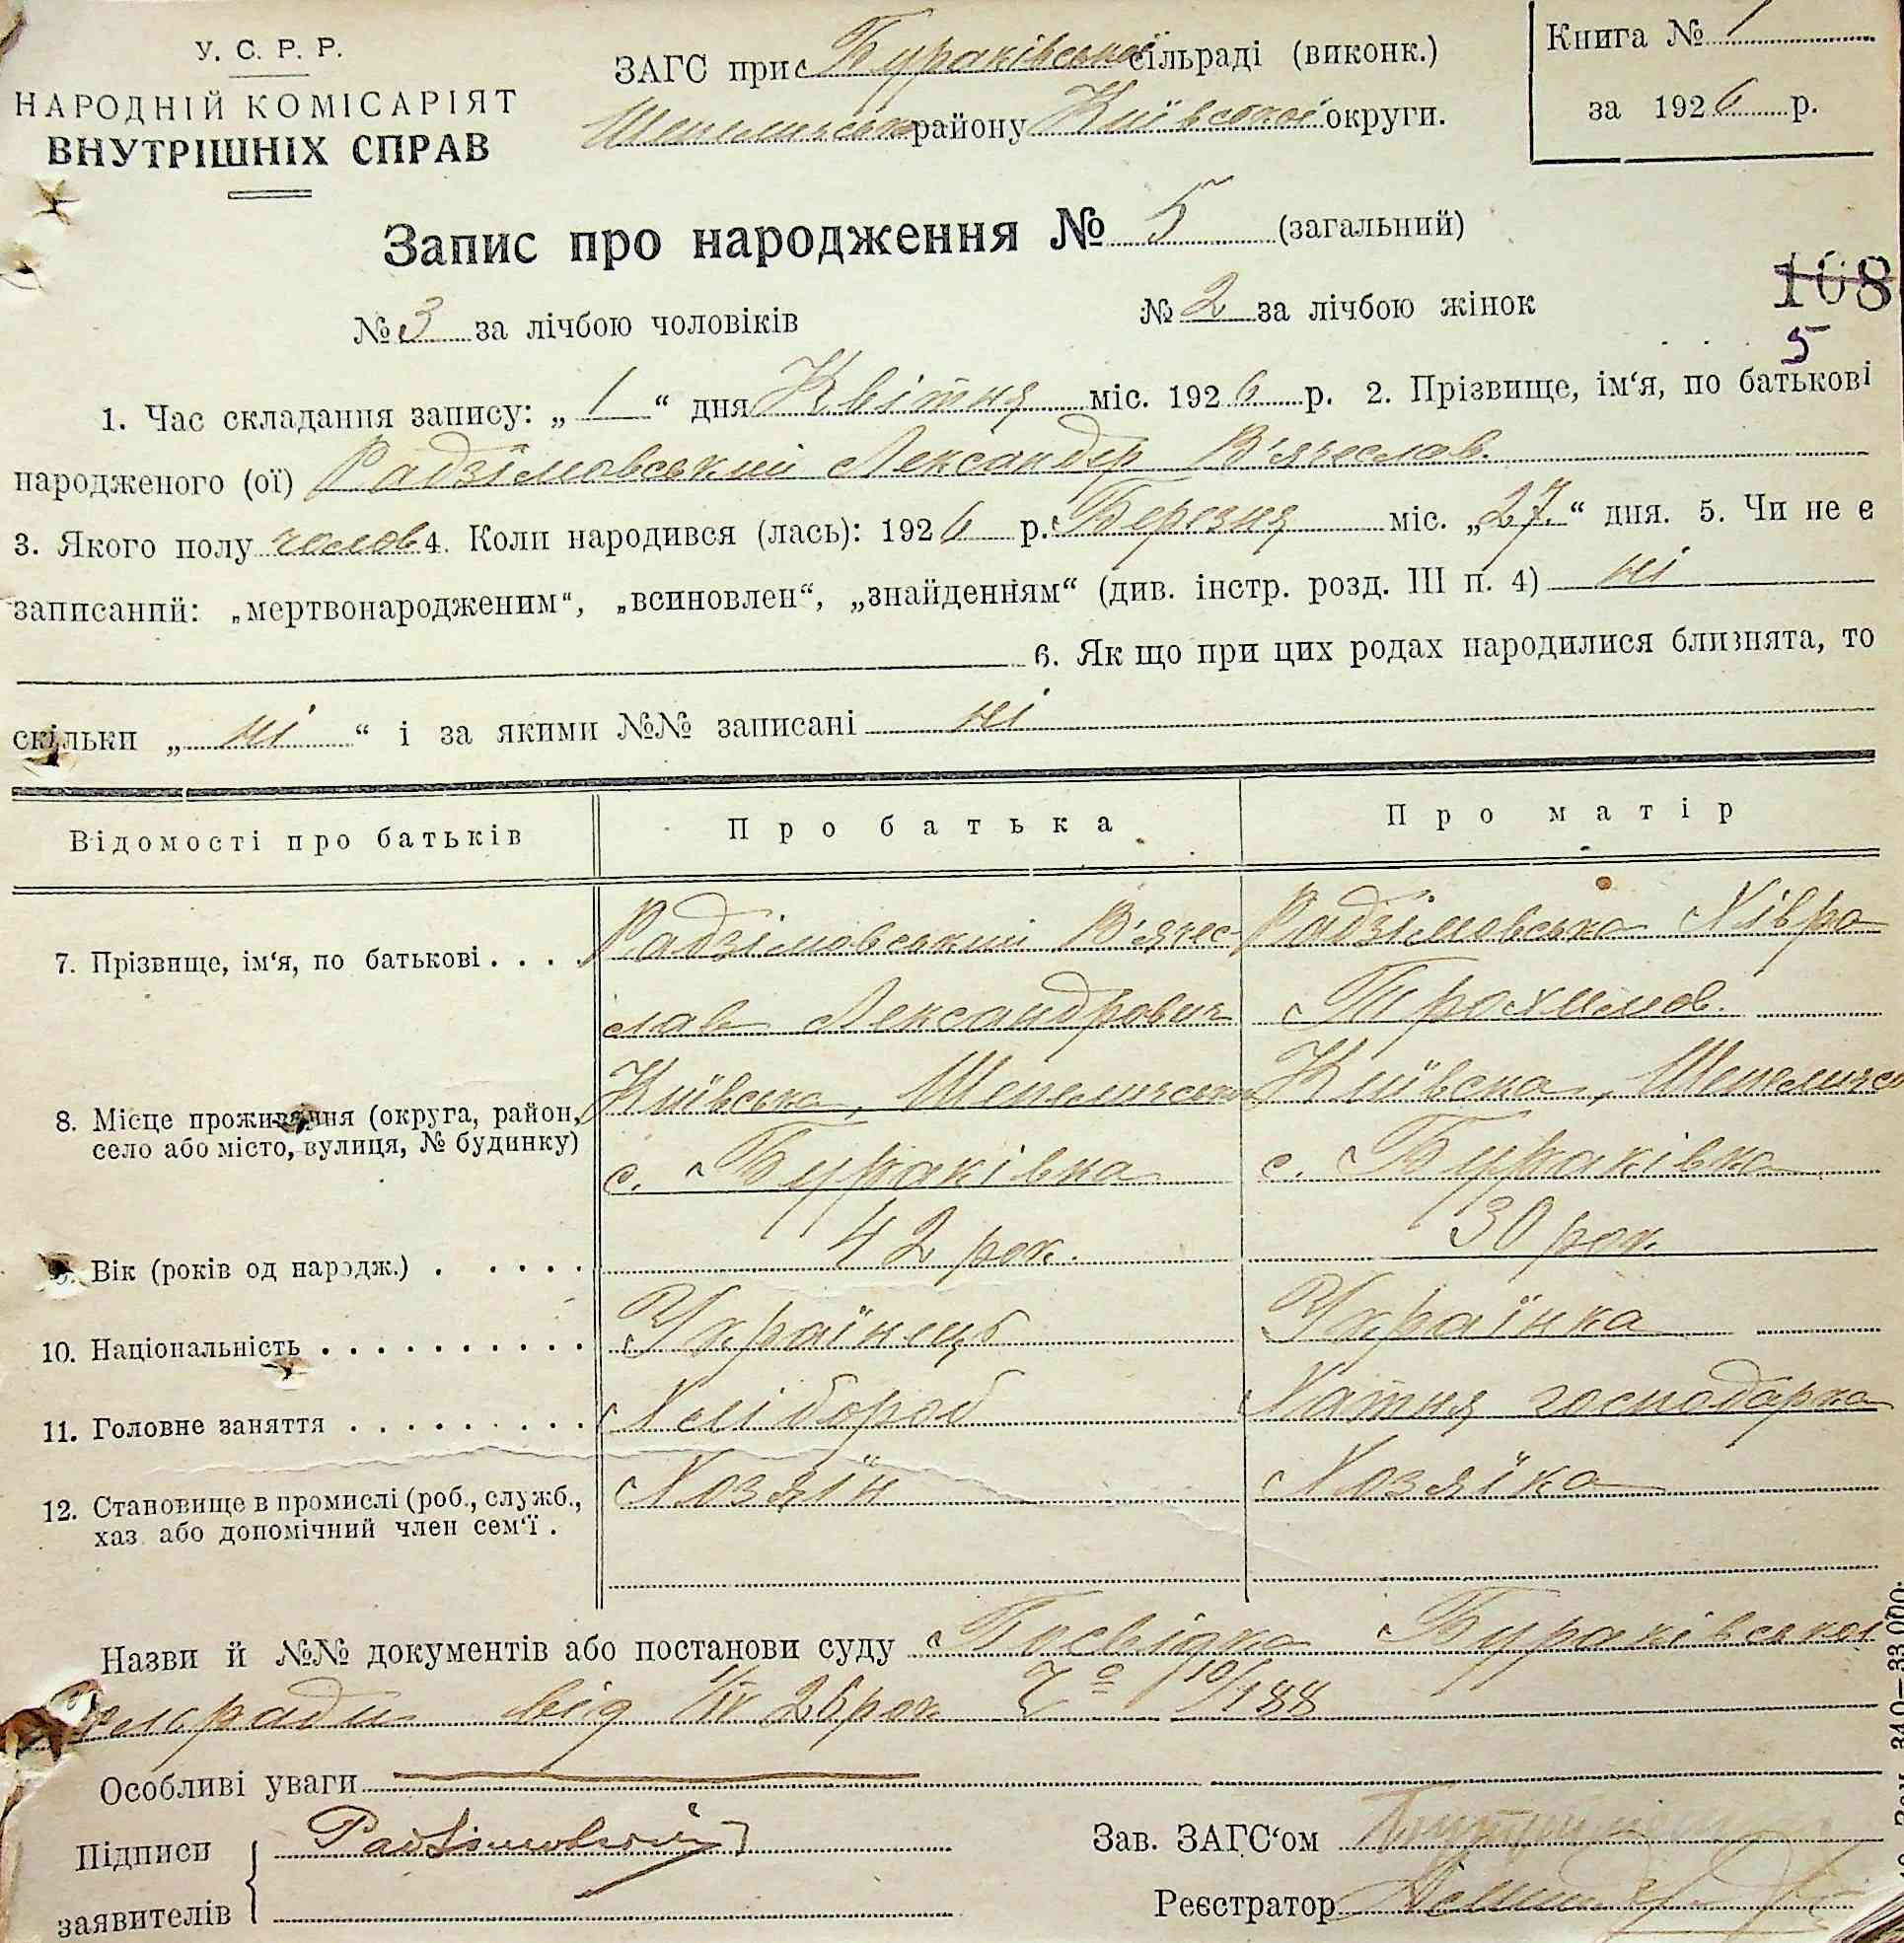 У. С. Р. Р.
НАРОДНІЙ КОМІСАРІЯТ
ВНУТРІШНІХ СПРАВ
ЗАГС при Бураківській сільраді (виконк.)
Шепелицько району Київської округи.
Книга № 1
за 1926 р.
Запис про народження № 5 (загальний)
№ 3 за лічбою чоловіків № 2 за лічбою жінок
108
5
1. Час складання запису: „ 1 “ дня Квітня міс. 1926 р. 2. Прізвище, ім‘я, по батькові
народженого (ої) Радзімовський Лександер В'ячеслав.
3. Якого полу чолов 4. Коли народився (лась): 1926 р. Березня міс. „27.“ дня. 5. Чи не є
записаний: „мертвонародженим“, „всиновлен“, „знайденням“ (див. інстр. розд. III п. 4) ні
6. Як що при цих родах народилися близнята, то
скільки „ ні “ і за якими №№ записані ні
Відомості про батьків Про батька Про матір
7. Прізвище, ім‘я, по батькові . . . . Радзімовський В'ячес- Радзімовська Хівра
лав Лександрович Трохимов.
8. Місце проживання (округа, район, Київська, Шепелицьки Київска, Шепеличс
село або місто, вулиця, № будинку) с. Бураківка с. Бураківка
9. Вік (років од народж.) . . . . . 42 рок. 30 рок.
10. Національність . . . . . . . . . . Українець Українка
11. Головне заняття . . . . . . . . . Хлібороб Хатня господарка
12. Становище в промислі (роб., служб., Хозяїн Хозяїка
хаз. або допомічний член сем‘ї .
Назви й №№ документів або постанови суду Посвідка Бураківської
сельради від 1/IV 26 рок 10/188
Особливі уваги
Підписи Радзімовський Зав. ЗАГС‘ом
заявителів Реєстратор
340—33.000.